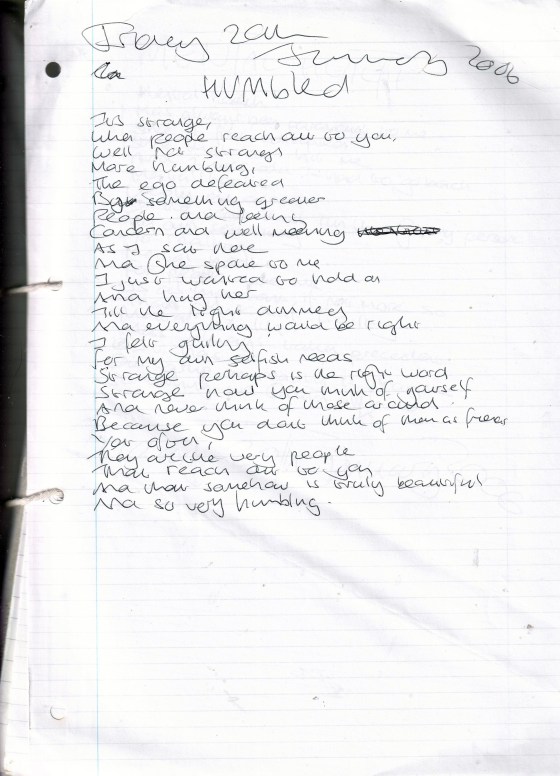 2006
HUMBLED
Its strange,
When people reach out to you,
Well not strange
More humbling,
The ego defeated
By something greater
People and feeling
Concern and well meaning
As I sat here
And she spoke to me
I just wanted to hold on
And hug her
Till the light dimmed
And everything would be right
I felt guilty
For my own selfish needs
Strange perhaps is the right word
Strange how you think of yourself
And never think of those around.
Because you dont think of them as friends
Yet often,
They are the very people
That reach out to you
And that somehow is truly beautiful
And so very humbling.